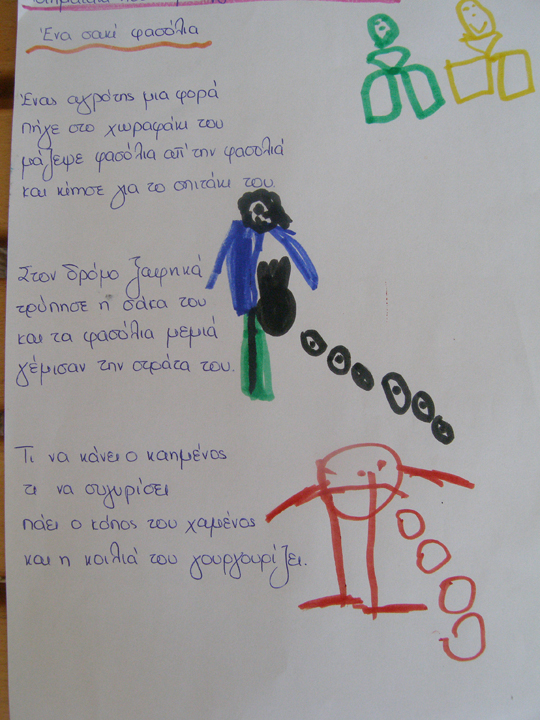 Ένα σακί φασόλια
Ένας αγρότης μια φορά
πήγε στο χωραφάκι του
μάζεψε φασόλια απ' την φασολιά
και κίτσε για το σπιτάκι του.
Στον δρόμο ξαφνικά
τρύπησε η σάκα του
και τα φασόλια μεμιά
γέμισαν την στράτα του.
Τι να κάνει ο καημένος
τι να συγυρίσει
πάει ο κόπος του χαμένος
και η κοιλιά του γουργουρίζει.